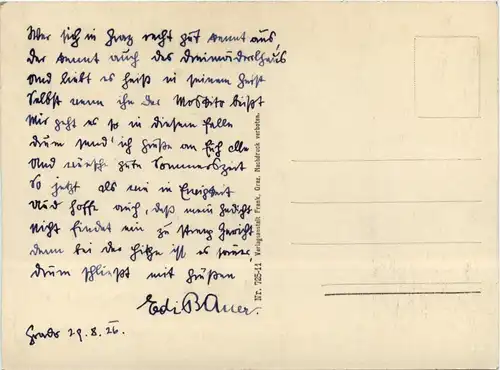 Wer sich in Graz recht gut kennt aus,
der kennt auch das Dreimäderlhaus
und liebt es heiß in seinem Geist
Selbst wenn ihn der Moskito beißt
Mir geht es so in diesem Falle
drum send' ich Grüße an Euch alle
Und wünsche gute Sommerszeit
So jetzt als wie in Ewigkeit
Und hoffe auch, daß mein Gedicht
nicht findet ein zu streng Gericht
denn bei der Hitze ist es schwer
drum schließt mit Grüßen
Edi Bauer.
Graz 29.8.26.
Nr. 725-11 Verlagsanstalt Frank, Graz, Nachdruck verboten.